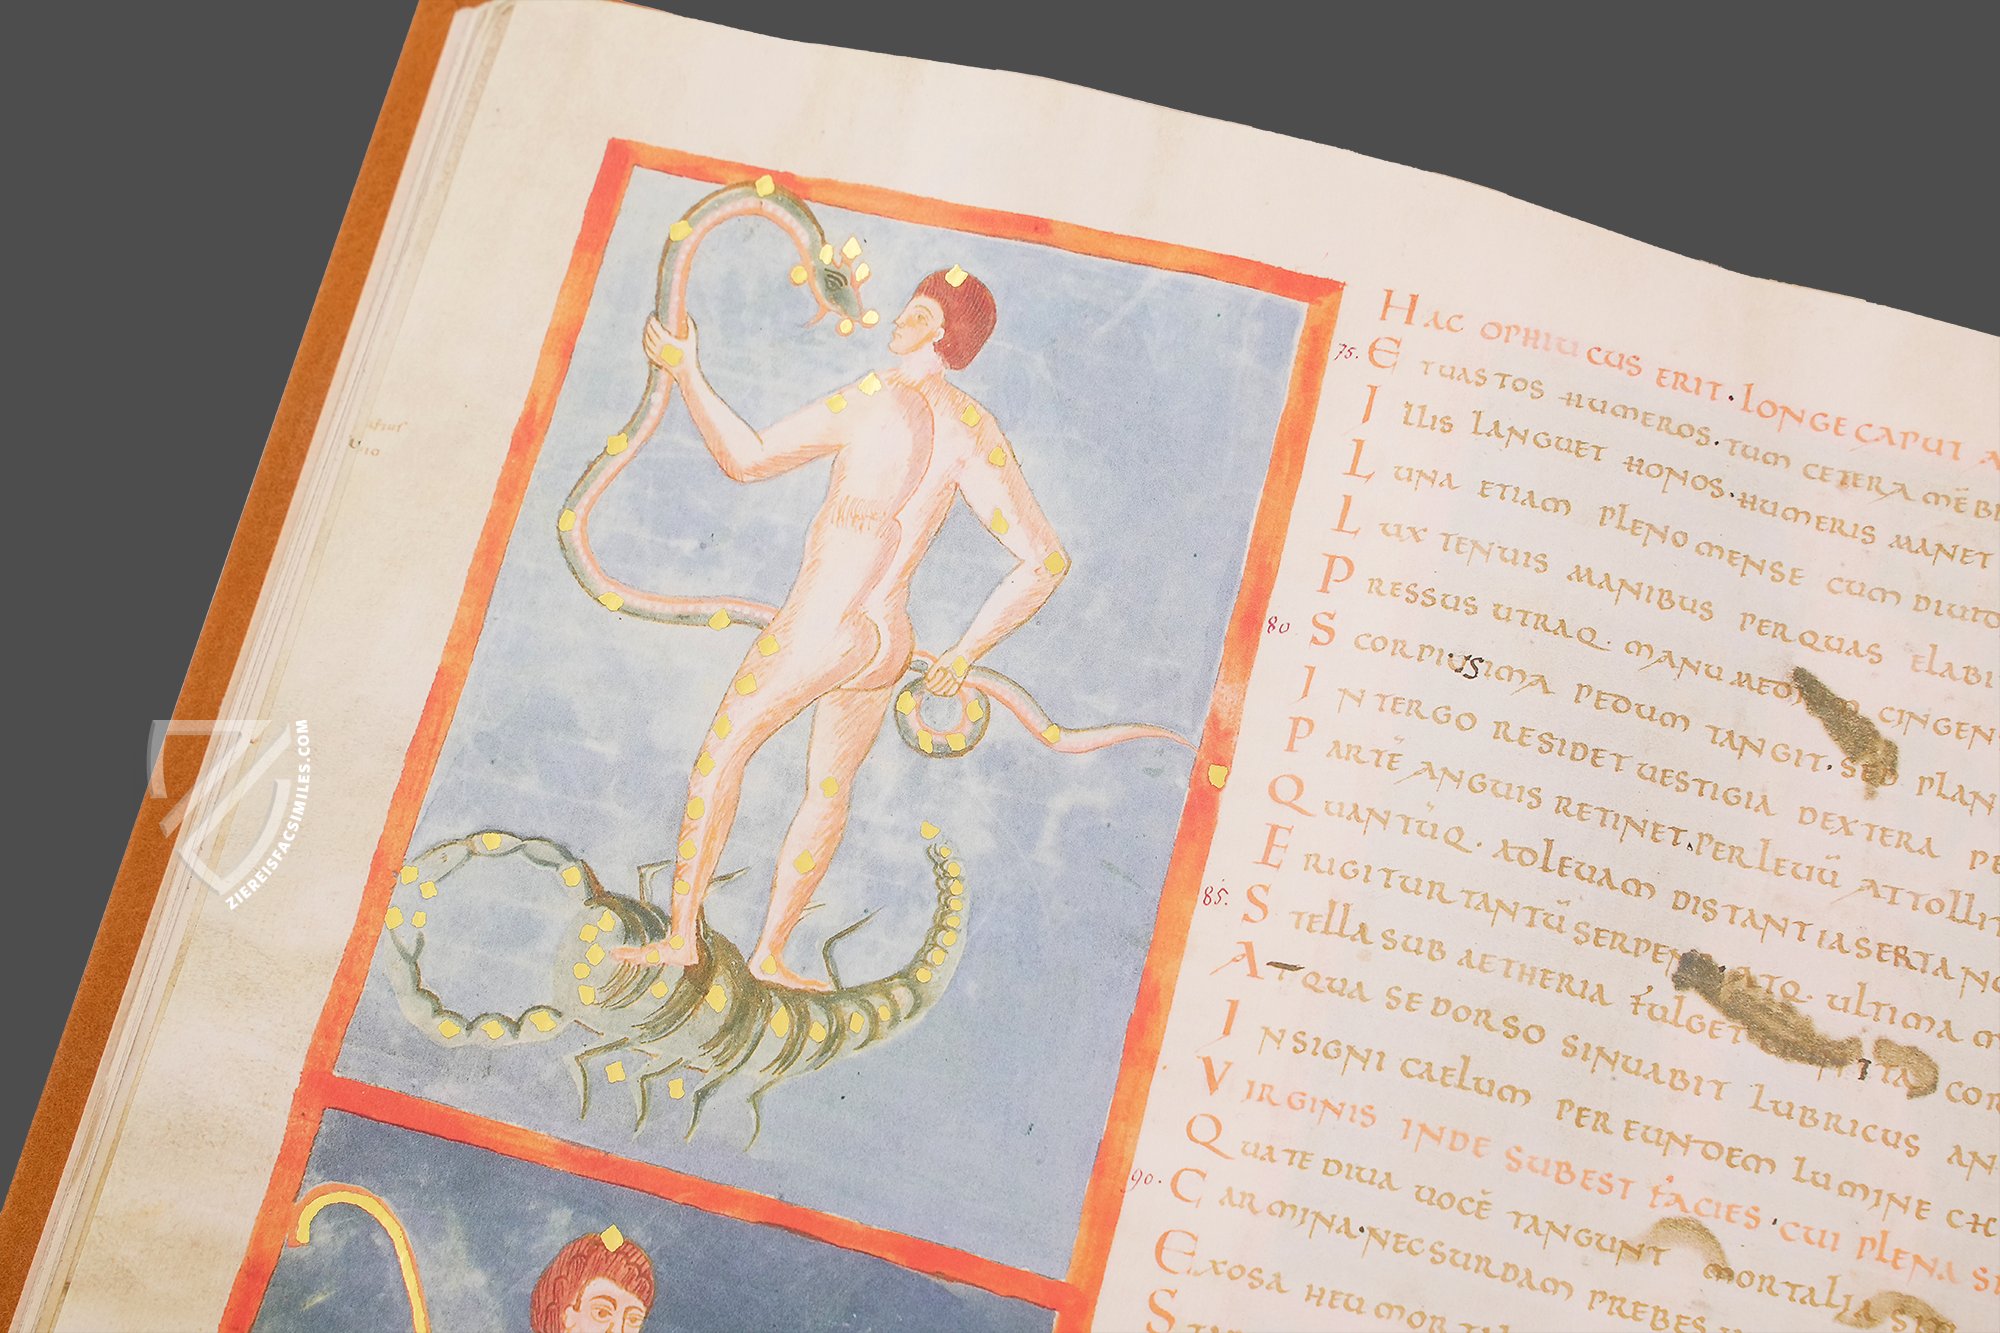 HAC OPHIUCUS ERIT. LONGE CAPUT A
75. ET UASTOS HUMEROS. TUM CETERA MĒB
ILLIS LANGUET HONOS. HUMERIS MANET
LUNA ETIAM PLENO MENSE CUM DIUID
LUX TENUIS MANIBUS PERQUAS ELABI
PRESSUS UTRAQ. MANU MEDI CINGEN
80. SCORPIUS IMA PEDUM TANGIT. SED PLAN
IN TERGO RESIDET UESTIGIA DEXTERA PE
PARTĒ ANGUIS RETINET. PER LEUŪ ATTOLLIT
QUANTŪQ. ADLEUAM DISTANTIA SERTA NO
ERIGITUR TANTŪ SERPEN ATQ. ULTIMA M
85. STELLA SUB AETHERIA FULGET COR
AT QUA SE DORSO SINUABIT LUBRICUS AN
INSIGNI CAELUM PER EUNDEM LUMINE CH
VIRGINIS INDE SUBEST FACIES. CUI PLENA SI
QUATE DIUA UOCĒ TANGUNT MORTALIA
90. CARMINA. NEC SURDAM PREBES
EXOSA HEU MORTAL
ZIEREISFACSIMILES.COM